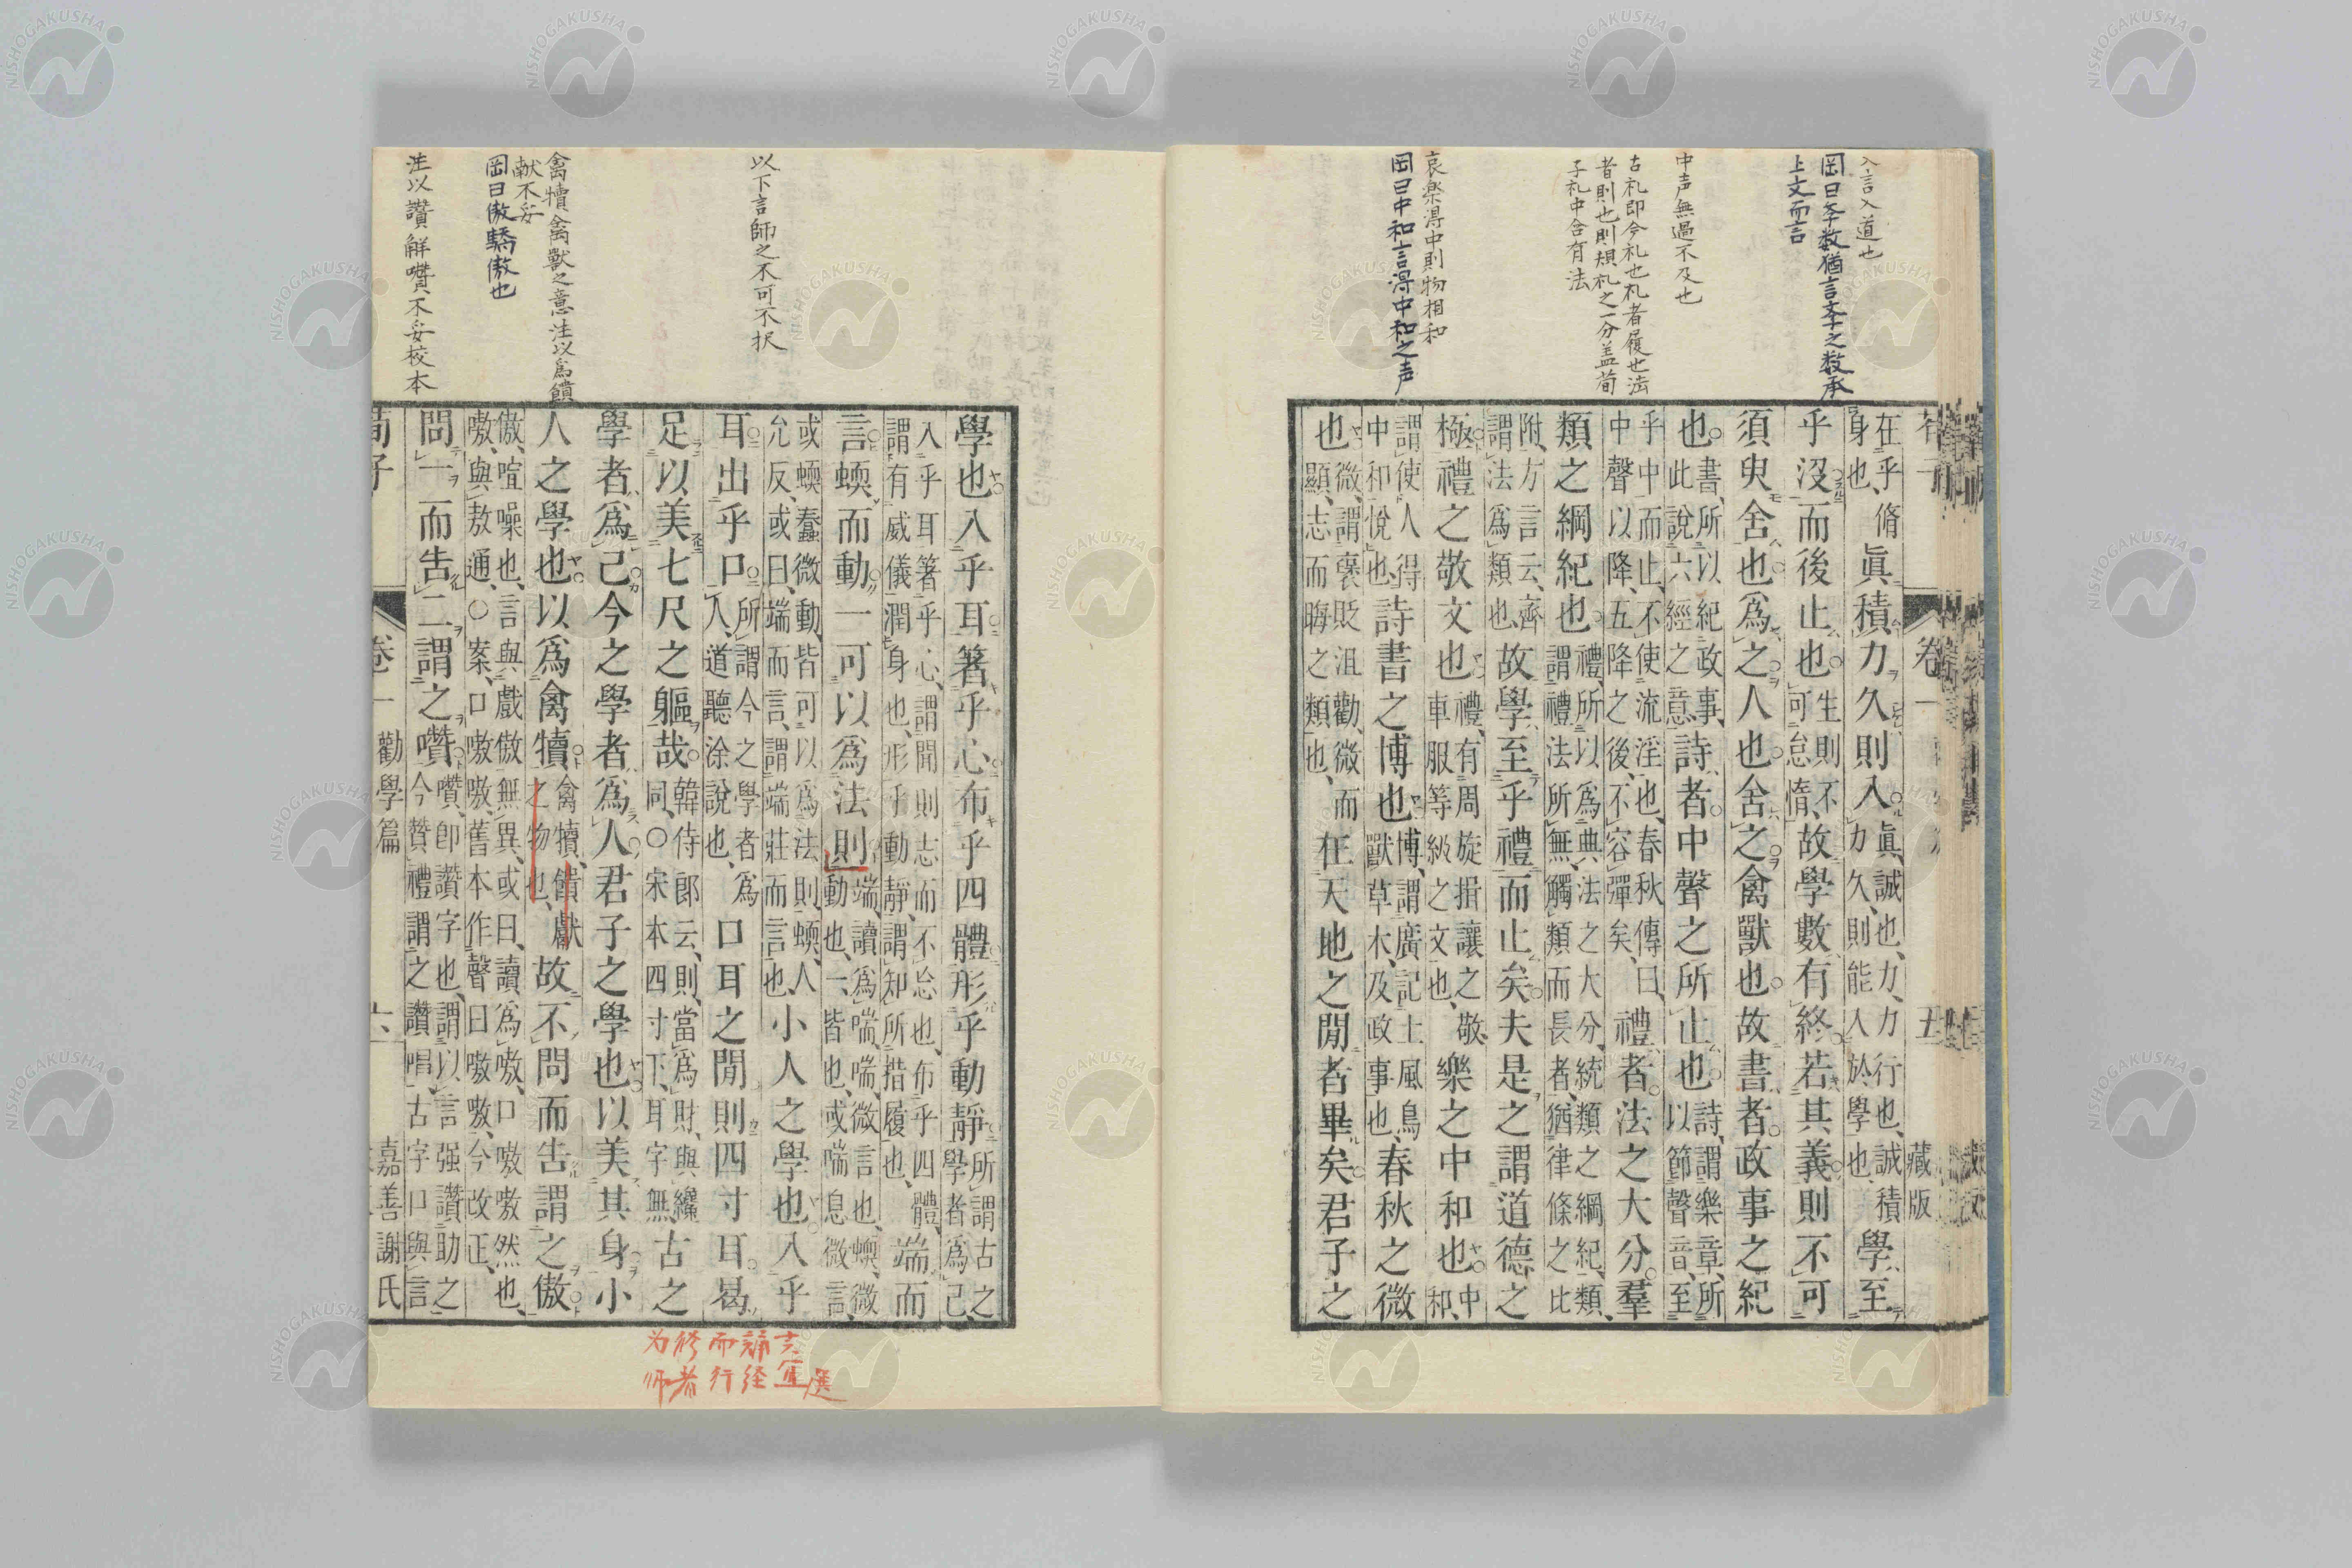 入言入道也
岡曰学数猶言学之数承
上文而言
中声無過不及也
古礼即今礼也礼者履也法
者則也則規礼之一分盖荀
子礼中含有法
哀楽得中則物相和
岡曰中和言得中和之声
荀子 卷一 五 藏版
在乎、脩身也、眞積力久則入眞、誠也、力、力行也、誠積力久、則能入於學也、學至
乎沒而後止也生則不可怠惰、故學數有終若其義則不可
須臾舍也爲之人也舍之禽獸也故書者政事之紀
也書、所以紀政事、此說六經之意、詩者中聲之所止也詩、謂樂章、所以節聲音、至
乎中而止、不使流淫也、春秋傳曰、中聲以降、五降之後、不容彈矣、禮者法之大分羣
類之綱紀也禮、所以爲典法之大分、統類之綱紀、類、謂禮法所無、觸類而長者、猶律條之比
附、方言云、齊謂法爲類也、故學至乎禮而止矣夫是之謂道德之
極禮之敬文也禮、有周旋揖讓之敬、車服等級之文也、樂之中和也中和、
謂使人得中和悅也、詩書之博也博、謂廣記土風鳥獸草木、及政事也、春秋之微
也微、謂褒貶沮勸、微而顯、志而晦之類也、在天地之閒者畢矣君子之
以下言師之不可不択
禽犢禽獸之意注以爲饋
献不妥
岡曰傲驕傲也
注以讚解囋不妥校本
學也入乎耳箸乎心布乎四體形乎動靜所謂古之學者爲己、
入乎耳箸乎心、謂聞則志而不忘也、布乎四體、謂有威儀潤身也、形乎動靜、謂知所措履也、端而
言蝡而動一可以爲法則端、讀爲喘、喘、微言也、蝡、微動也、一、皆也、或喘息微言、
或蝡蠢微動、皆可以爲法則、蝡、人允反、或曰、端而言、謂端莊而言也、小人之學也入乎
耳出乎口所謂今之學者爲人、道聽涂說也、口耳之閒則四寸耳曷
足以美七尺之軀哉韓侍郎云、則、當爲財、與纔同、〇宋本四寸下、耳字無、古之
學者爲己今之學者爲人君子之學也以美其身小
人之學也以爲禽犢禽犢、饋獻之物也、故不問而告謂之傲
傲、喧噪也、言與戲傲無異、或曰、讀爲嗷、口嗷嗷然也、嗷、與敖通、〇案、口嗷嗷、舊本作聲曰嗷嗷、今改正、
問一而告二謂之囋囋、卽讚字也、謂以言强讚助之、今贊禮謂之讚唱、古字口與言
荀子 卷一 勸學篇 六 嘉善謝氏
言宜選
誦経
而行
修者
为师